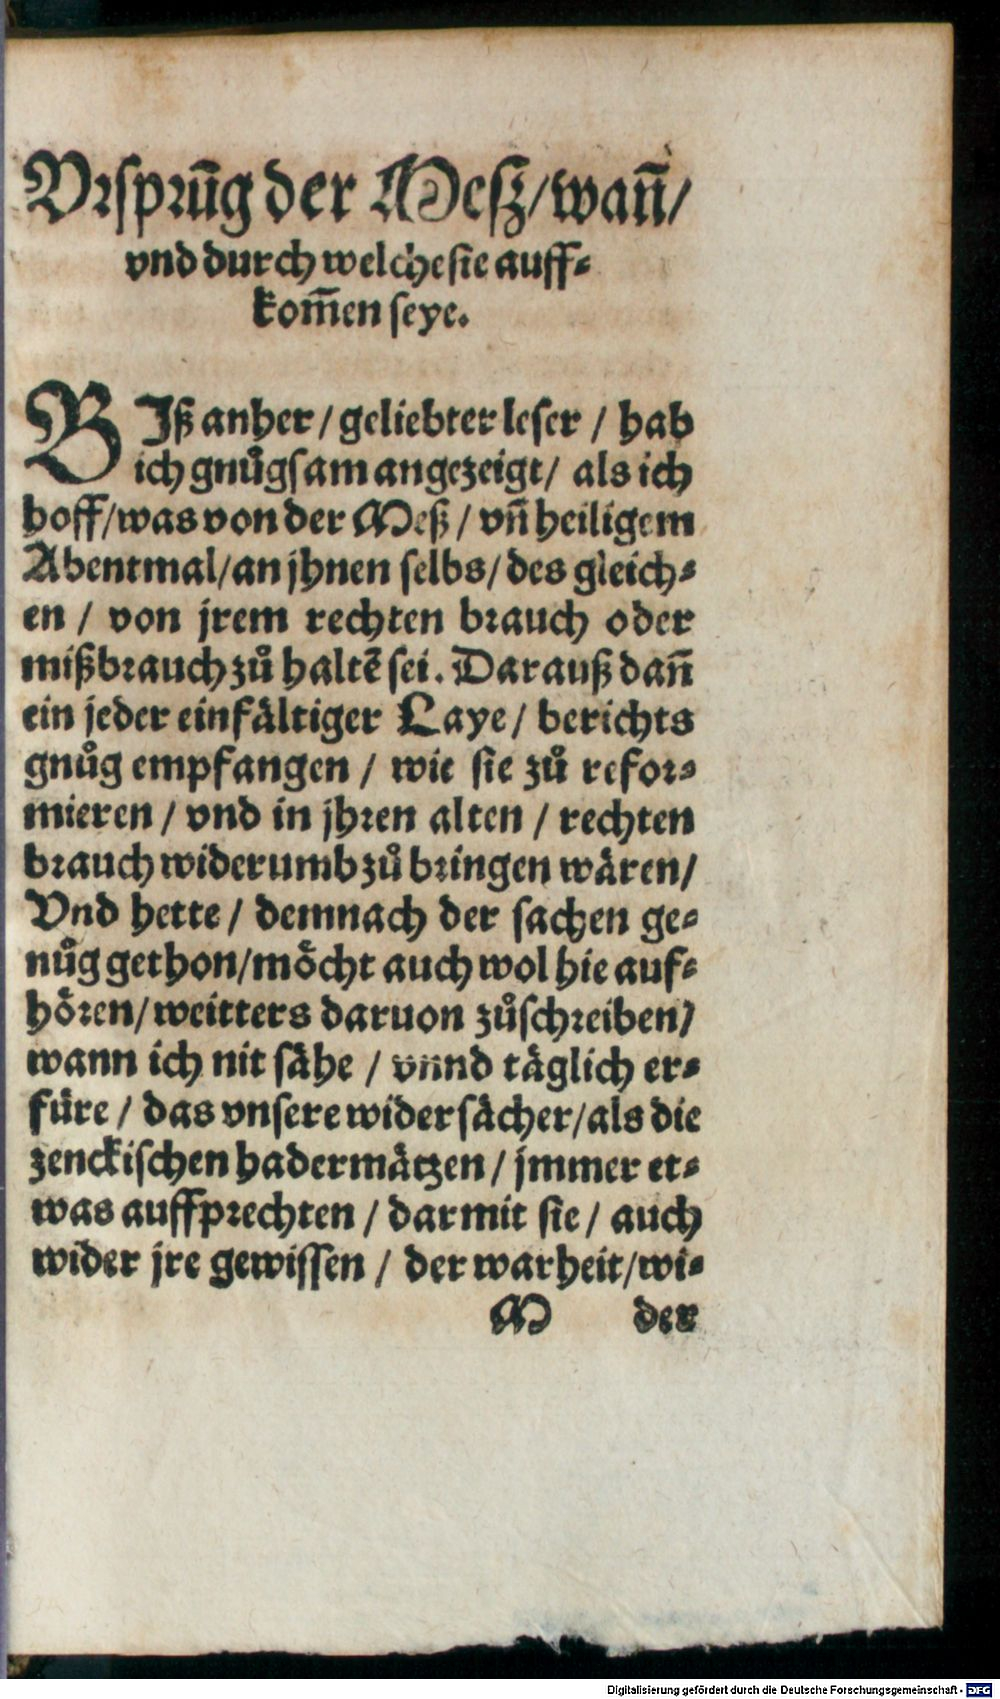 Vrsprūg der Mesz/wañ/
vnd durch welche sie auff⸗
kom̄en seye.
BIß anher / geliebter leser / hab
ich gnůgsam angezeigt/ als ich
hoff/was von der Meß / vñ heiligem
Abentmal/an jhnen selbs/des gleich⸗
en / von jrem rechten brauch oder
mißbrauch zů haltē sei. Darauß dañ
ein jeder einfältiger Laye / berichts
gnůg empfangen / wie sie zů refor⸗
mieren / vnd in jhren alten / rechten
brauch widerumb zů bringen wären/
Vnd hette / demnach der sachen ge⸗
nůg gethon/mo̊cht auch wol hie auf⸗
ho̊ren/weitters daruon zůschreiben/
wann ich nit sähe / vnnd täglich er⸗
füre / das vnsere widersächer/als die
zenckischen hadermätzen / jmmer et⸗
was auffprechten / darmit sie / auch
wider jre gewissen / der warheit/wi⸗
M der
Digitalisierung gefördert durch die Deutsche Forschungsgemeinschaft - DFG